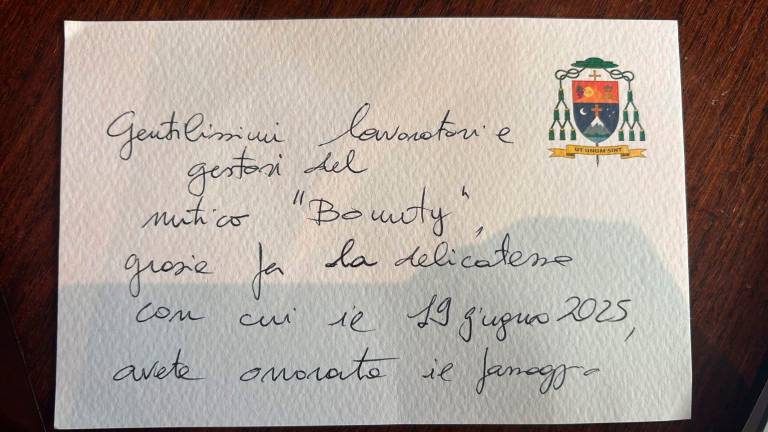 UT UNUM SINT
Gentilissimi lavoratori e
gestori del
mitico "Bounty",
grazie per la delicatezza
con cui il 19 giugno 2025,
avete onorato il passaggio